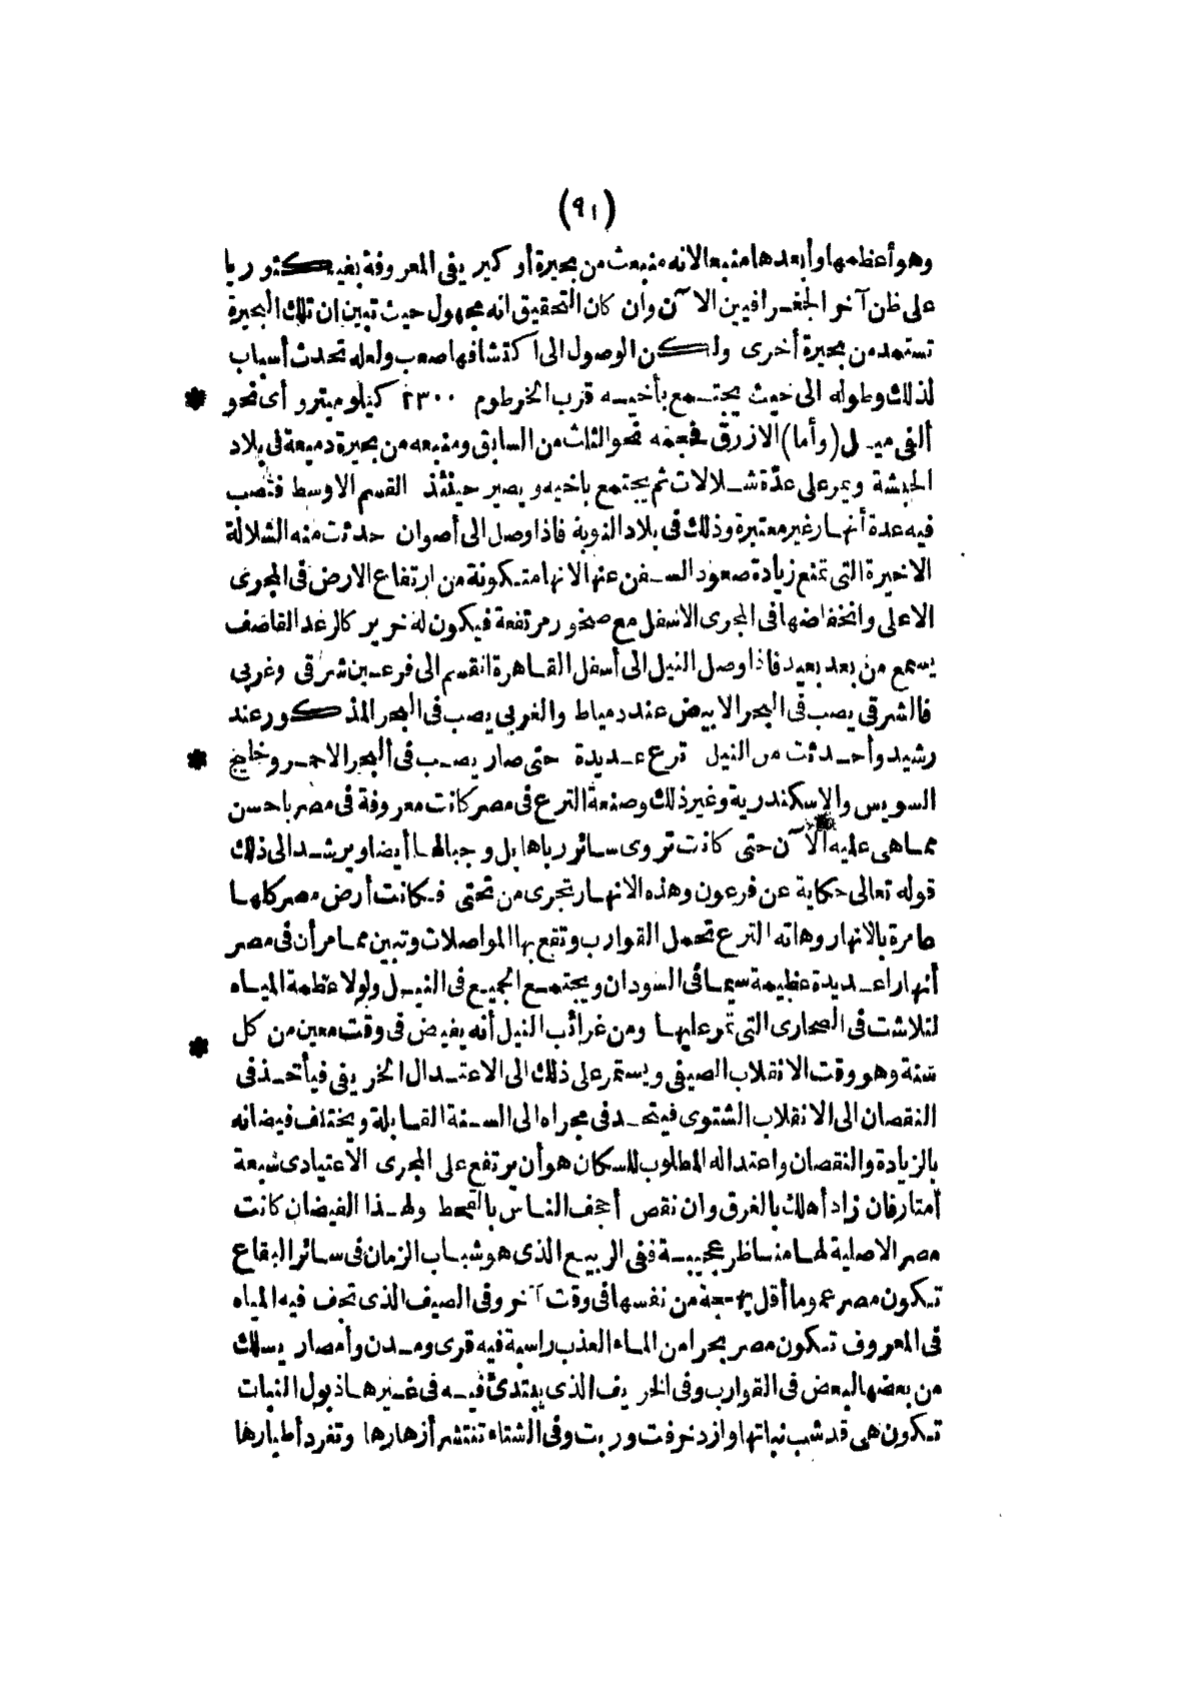 (٩١)
وهو أعظمها وأبعدها منبعا لانه منبعث من بحيرة أوكيريفى المعروفة بفيكتوريا
على ظن آخر الجغرافيين الآن وان كان التحقيق انه مجهول حيث تبين ان تلك البحيرة
تستمد من بحيرة أخرى ولكن الوصول الى اكتشافها صعب ولعله تحدث أسباب
لذلك وطوله الى حيث يجتمع بأخيه قرب الخرطوم ٢٣٠٠ كيلوميترو أى نحو *
ألفى ميل (وأما) الازرق فحجمه نحو الثلث من السابق ومنبعه من بحيرة دميعة فى بلاد
الحبشة ويمر على عدّة شلالات ثم يجتمع باخيه ويصير حينئذ القسم الاوسط فتصب
فيه عدة أنهار غير معتبرة وذلك فى بلاد النوبة فاذا وصل الى أصوان حدثت منه الشلالة
الاخيرة التى تمنع زيادة صعود السفن عنها لانها متكونة من ارتفاع الارض فى المجرى
الاعلى وانخفاضها فى المجرى الاسفل مع صخور مرتفعة فيكون له خرير كالرعد القاصف
يسمع من بعد بعيد فاذا وصل النيل الى أسفل القاهرة انقسم الى فرعين شرقى وغربى
فالشرقى يصب فى البحر الابيض عند دمياط والغربى يصب فى البحر المذكور عند
رشيد وأحدثت من النيل ترع عديدة حتى صار يصب فى البحر الاحمر وخليج *
السويس والاسكندرية وغير ذلك وصنعة الترع فى مصر كانت معروفة فى مصر باحسن
مما هى عليه الآن حتى كانت تروى سائر رباها بل وجبالها أيضا ويرشد الى ذلك
قوله تعالى حكاية عن فرعون وهذه الانهار تجرى من تحتى فكانت أرض مصر كلها
عامرة بالانهار وهاته الترع تحمل القوارب وتقع بها المواصلات وتبين مما مر أن فى مصر
أنهارا عديدة عظيمة سيما فى السودان ويجتمع الجميع فى النيل ولولا عظمة المياه
لتلاشت فى الصحارى التى تمر عليها ومن غرائب النيل أنه يفيض فى وقت معين من كل *
سنة وهو وقت الانقلاب الصيفى ويستمر على ذلك الى الاعتدال الخريفى فيأخذ فى
النقصان الى الانقلاب الشتوى فيتحد فى مجراه الى السنة القابلة ويختلف فيضانه
بالزيادة والنقصان واعتداله المطلوب للسكان هو أن يرتفع على المجرى الاعتيادى سبعة
أمتار فان زاد أهلك بالغرق وان نقص أجحف الناس بالقحط ولهذا الفيضان كانت
مصر الاصلية لها مناظر عجيبة ففى الربيع الذى هو شباب الزمان فى سائر البقاع
تكون مصر عموما أقل بهجة من نفسها فى وقت آخر وفى الصيف الذى تجف فيه المياه
فى المعروف تكون مصر بحرا من الماء العذب راسية فيه قرى ومدن وأمصار يسلك
من بعضها لبعض فى القوارب وفى الخريف الذى يبتدئ فيه فى غيرها ذبول النبات
تكون هى قد شب نباتها وازدخرفت وربت وفى الشتاء تنتشر أزهارها وتغرد أطيارها